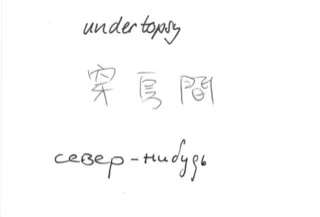 undertopsy
間
север-нибудь